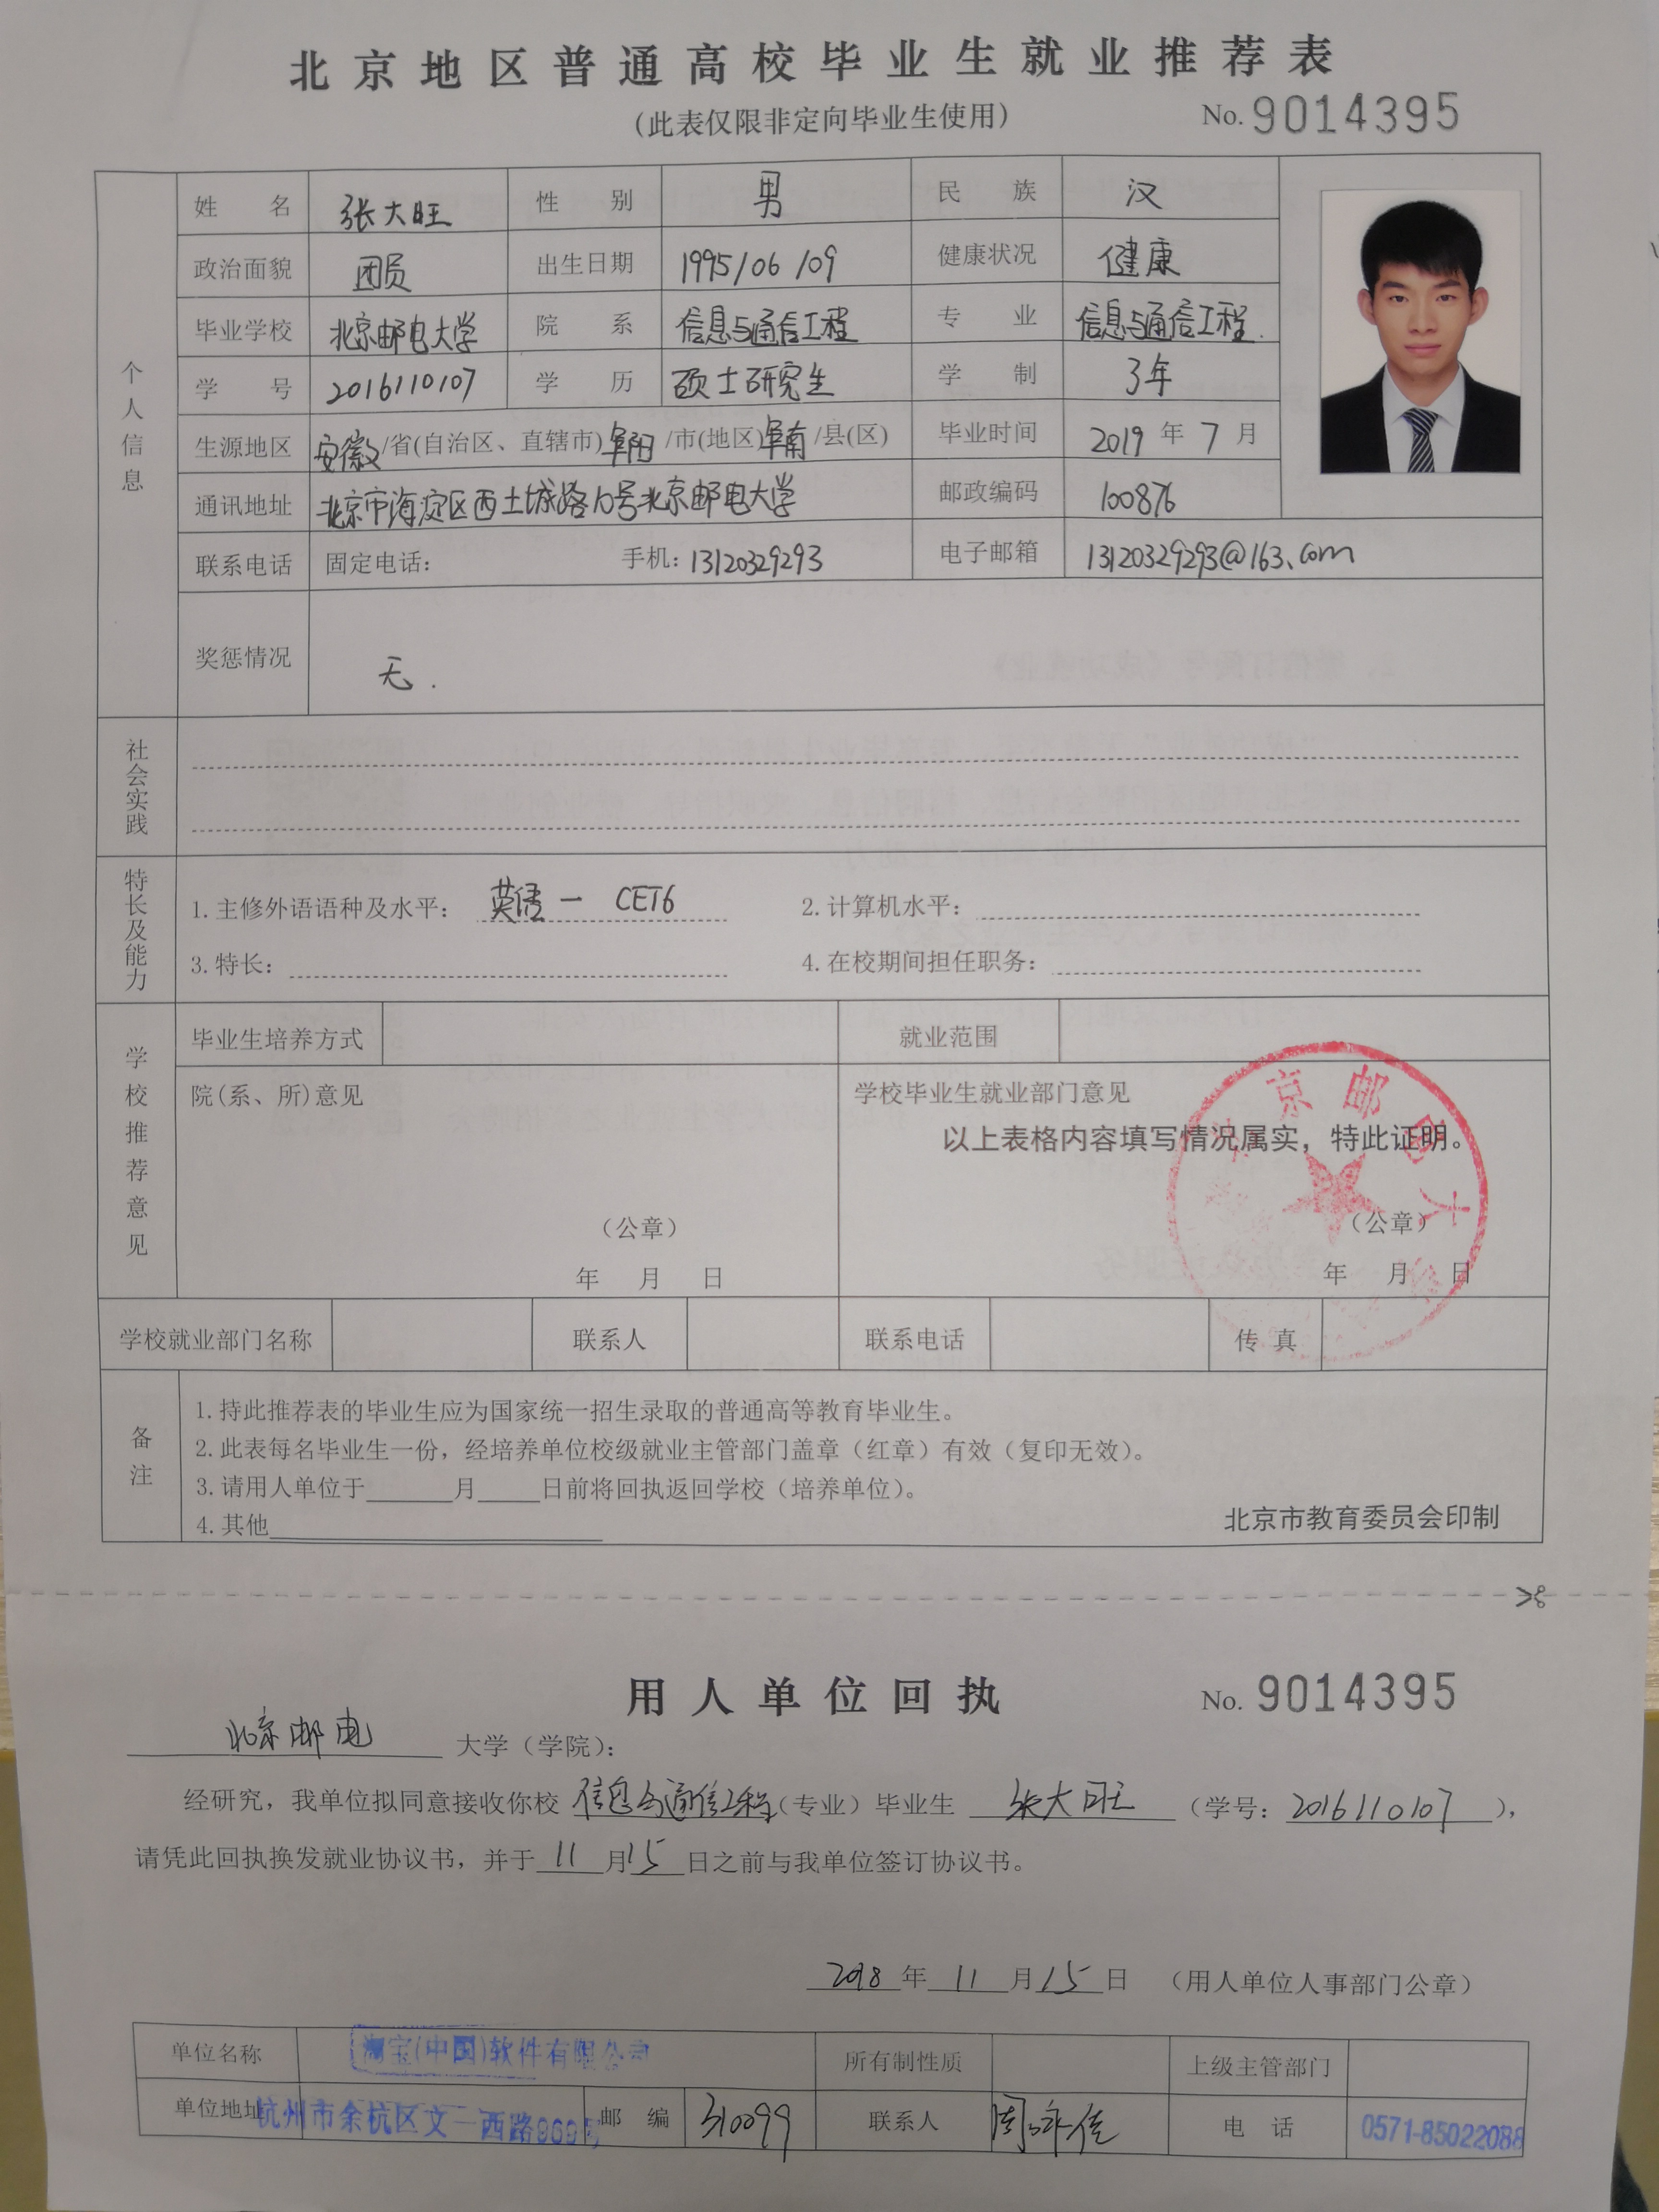 北京地区普通高校毕业生就业推荐表
(此表仅限非定向毕业生使用)
No. 9014395
个人信息
姓 名 张大旺 性 别 男 民 族 汉
政治面貌 团员 出生日期 1995/06/09 健康状况 健康
毕业学校 北京邮电大学 院 系 信息与通信工程 专 业 信息与通信工程.
学 号 2016110107 学 历 硕士研究生 学 制 3年
生源地区 安徽/省(自治区、直辖市)阜阳/市(地区)阜南/县(区) 毕业时间 2019 年 7 月
通讯地址 北京市海淀区西土城路10号北京邮电大学 邮政编码 100876
联系电话 固定电话: 手机: 13120329293 电子邮箱 13120329293@163.com
奖惩情况 无.
社会实践
特长及能力
1.主修外语语种及水平: 英语 — CET6 2.计算机水平:
3.特长: 4.在校期间担任职务:
学校推荐意见
毕业生培养方式 就业范围
院(系、所)意见 学校毕业生就业部门意见
以上表格内容填写情况属实，特此证明。
京邮电大
(公章) (公章)
年 月 日 年 月 日
学校就业部门名称 联系人 联系电话 传 真
备注
1.持此推荐表的毕业生应为国家统一招生录取的普通高等教育毕业生。
2.此表每名毕业生一份，经培养单位校级就业主管部门盖章（红章）有效（复印无效）。
3.请用人单位于 月 日前将回执返回学校（培养单位）。
4.其他
北京市教育委员会印制
用人单位回执
No. 9014395
北京邮电 大学（学院）：
经研究，我单位拟同意接收你校 信息与通信工程（专业）毕业生 张大旺 （学号: 2016110107 ），
请凭此回执换发就业协议书，并于 11 月 15 日之前与我单位签订协议书。
2018 年 11 月 15 日 （用人单位人事部门公章）
单位名称 淘宝(中国)软件有限公司 所有制性质 上级主管部门
单位地址 杭州市余杭区文一西路969号 邮 编 310099 联系人 电 话 0571-85022088